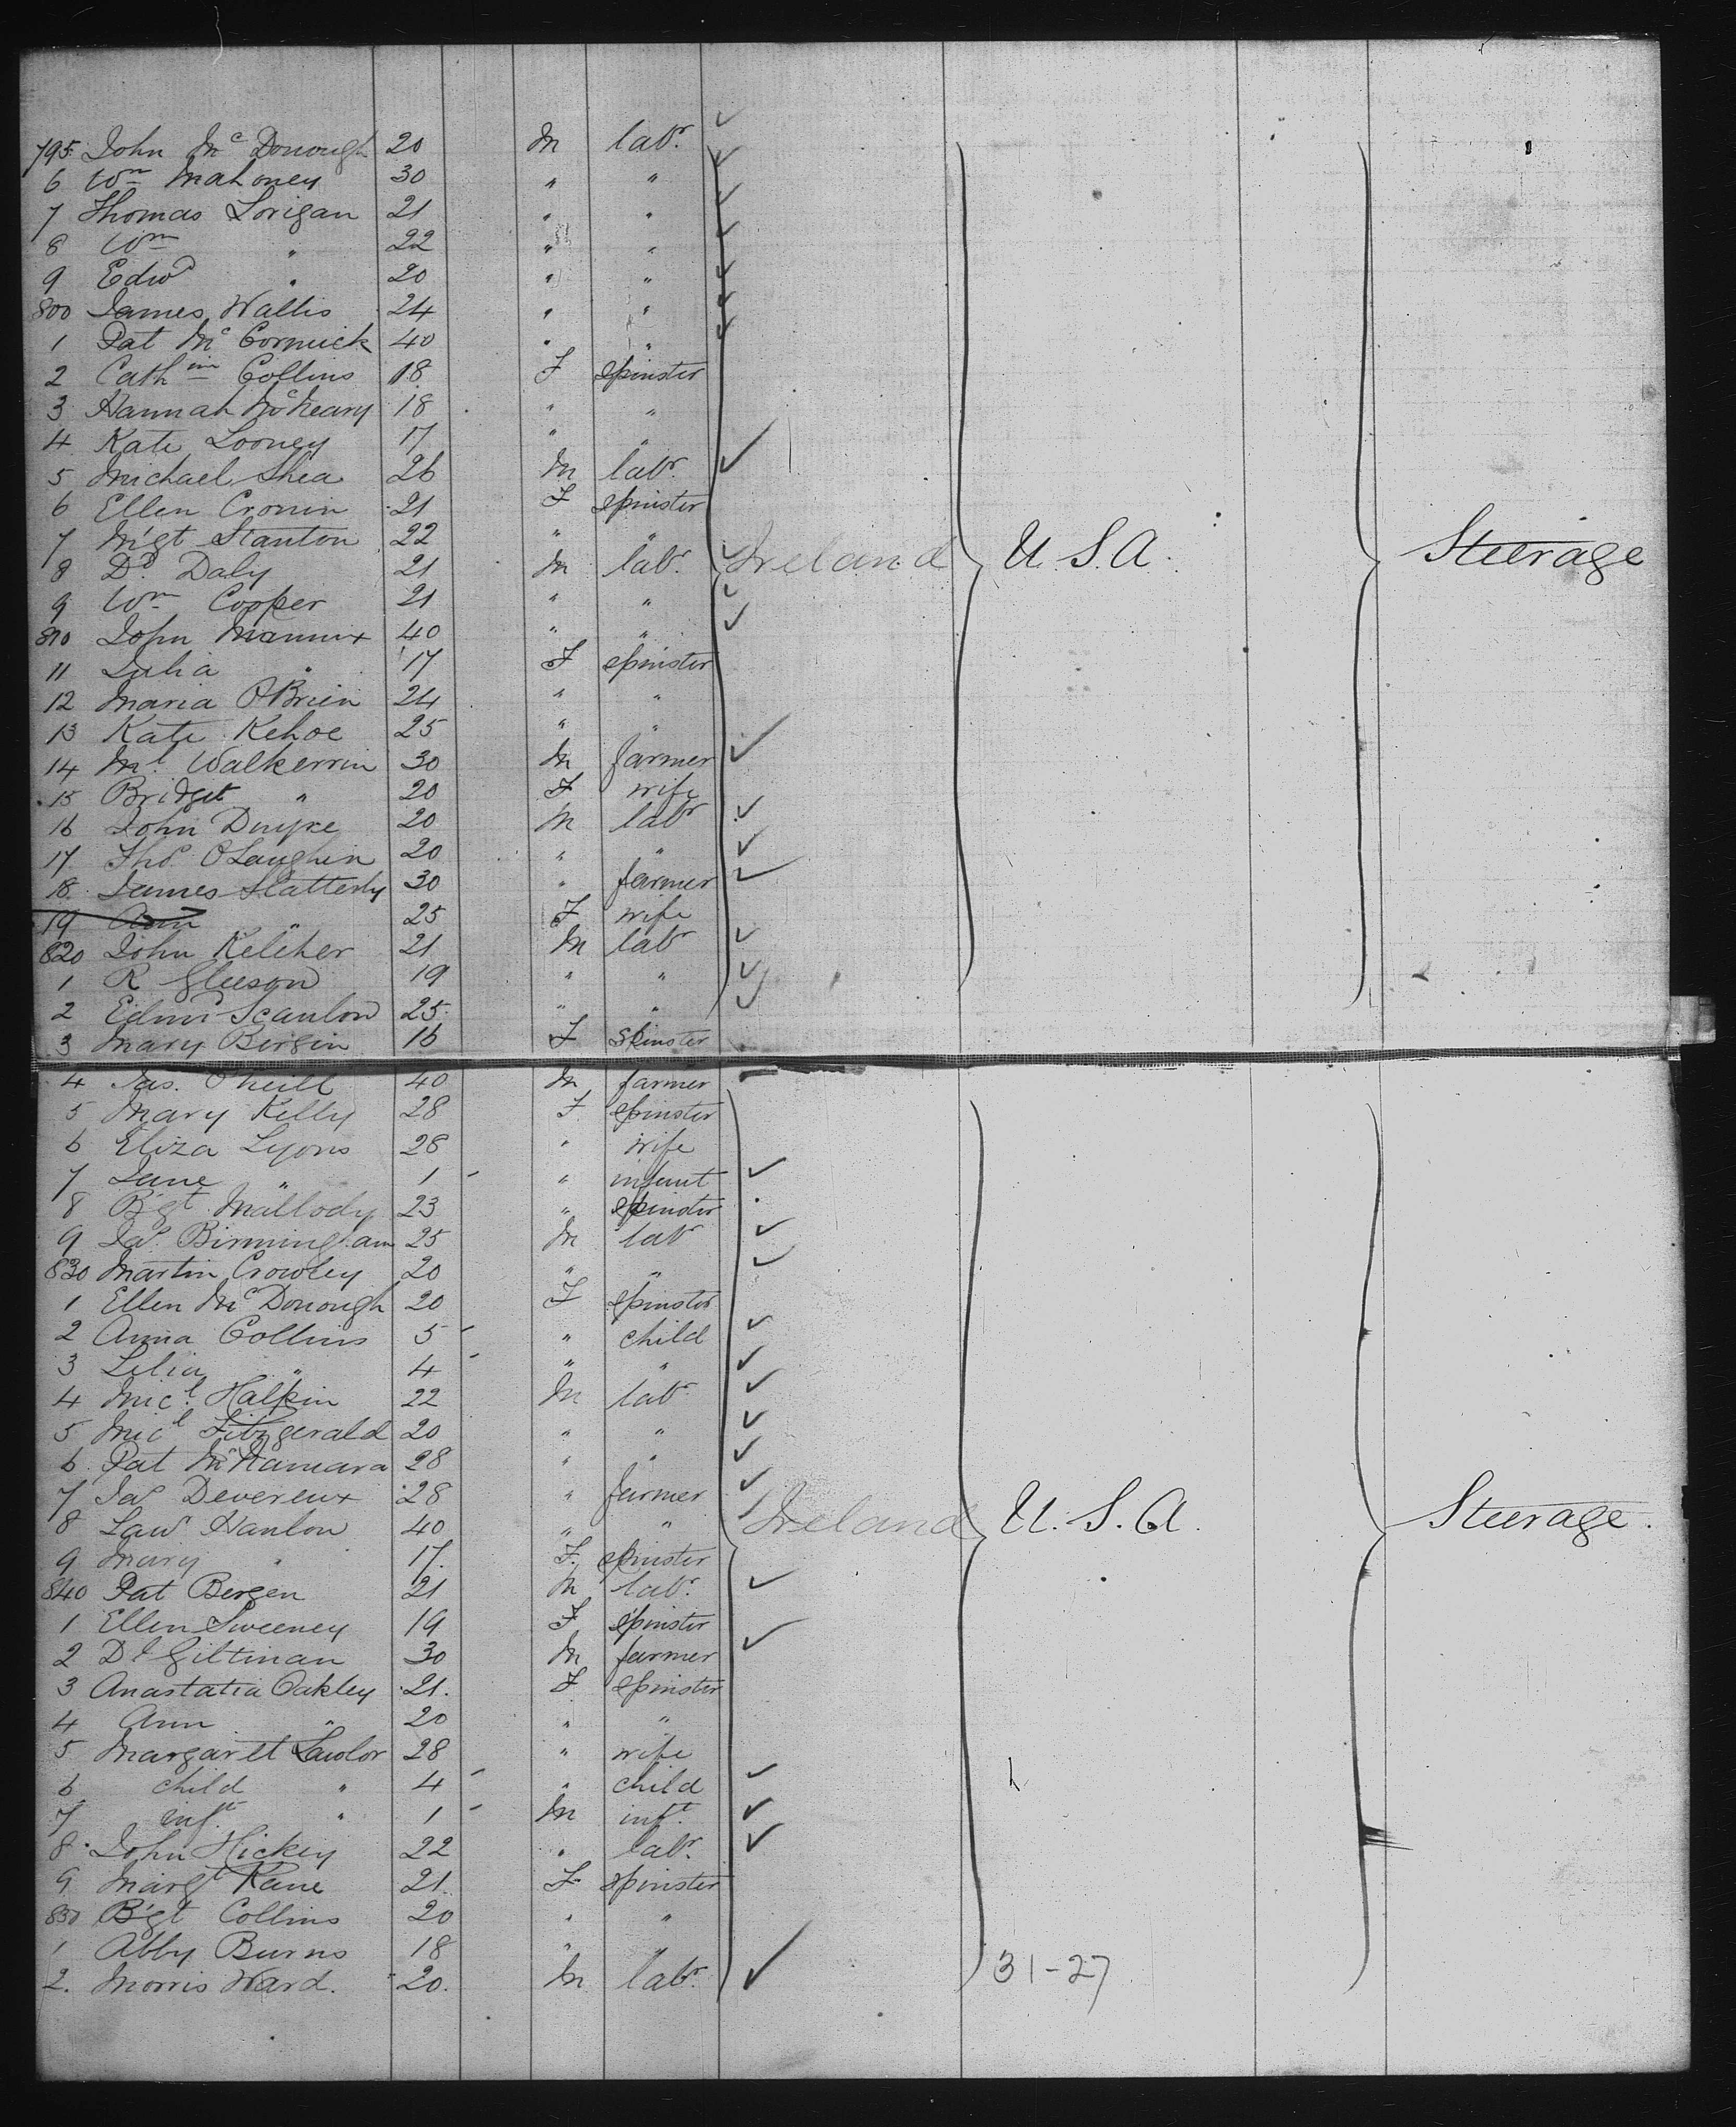 795 John Mc Donough 20 M labr.
6 Wm Mahoney 30 " "
7 Thomas Lorigan 21 " "
8 Wm " 22 " "
9 Edwd " 20 " "
800 James Wallis 24 " "
1 Pat Mc Cormick 40 " "
2 Cathine Collins 18 F spinster
3 Hannah 18 " "
4 Kate Looney 17 " "
5 Michael Shea 26 M labr.
6 Ellen Cronin 21 F spinster
7 M'gt Stanton 22 " "
8 Dl. Daly 21 M labr. Ireland U.S.A. Steerage
9 Wm Cooper 21 " "
810 John Mannix 40 " "
11 Julia " 17 F spinster
12 Maria O'Brien 24 " "
13 Kate Kehoe 25 " "
14 Ml. Walkerrin 30 M farmer
15 Bridget " 20 F wife
16 John 20 M labr
17 Thos. O'Laughin 20 " "
18 James Slatterly 30 " farmer
19 Ann " 25 F wife
820 John Kelcher 21 M labr
1 R Gleeson 19 " "
2 Edmd Scanlon 25 " "
3 Mary Bergin 16 F spinster
4 Jas. O'Neill 40 M farmer
5 Mary Kelly 28 F spinster
6 Eliza Lyons 28 " wife
7 Jane " 1 " infant
8 B'gt Mallody 23 " spinster
9 Jas. Birmingham 25 M labr
830 Martin Crowley 20 " "
1 Ellen Mc Donough 20 F spinster
2 Anna Collins 5 " child
3 Lilia " 4 " "
4 Micl. Halpin 22 M labr
5 Micl Fitzgerald 20 " "
6 Pat McNamara 28 " "
7 Jas Devereux 28 " farmer
8 Lawr Hanlon 40 " " Ireland U.S.A. Steerage.
9 Mary " 17 F. spinster
840 Pat Bergen 21 M labr.
1 Ellen Sweeney 19 F spinster
2 Dl Giltinan 30 M farmer
3 Anastatia Oakley 21. F spinster
4 Ann " 20 " "
5 Margaret Lawlor 28 " wife
6 child " 4 " child
7 inft. " 1 M inft.
8 John Hickey 22 " labr.
9 Margt Kane 21 F spinster
850 B'gt Collins 20 " "
1 Abby Burns 18 " "
2. Morris Ward. 20. M labr. 31-27